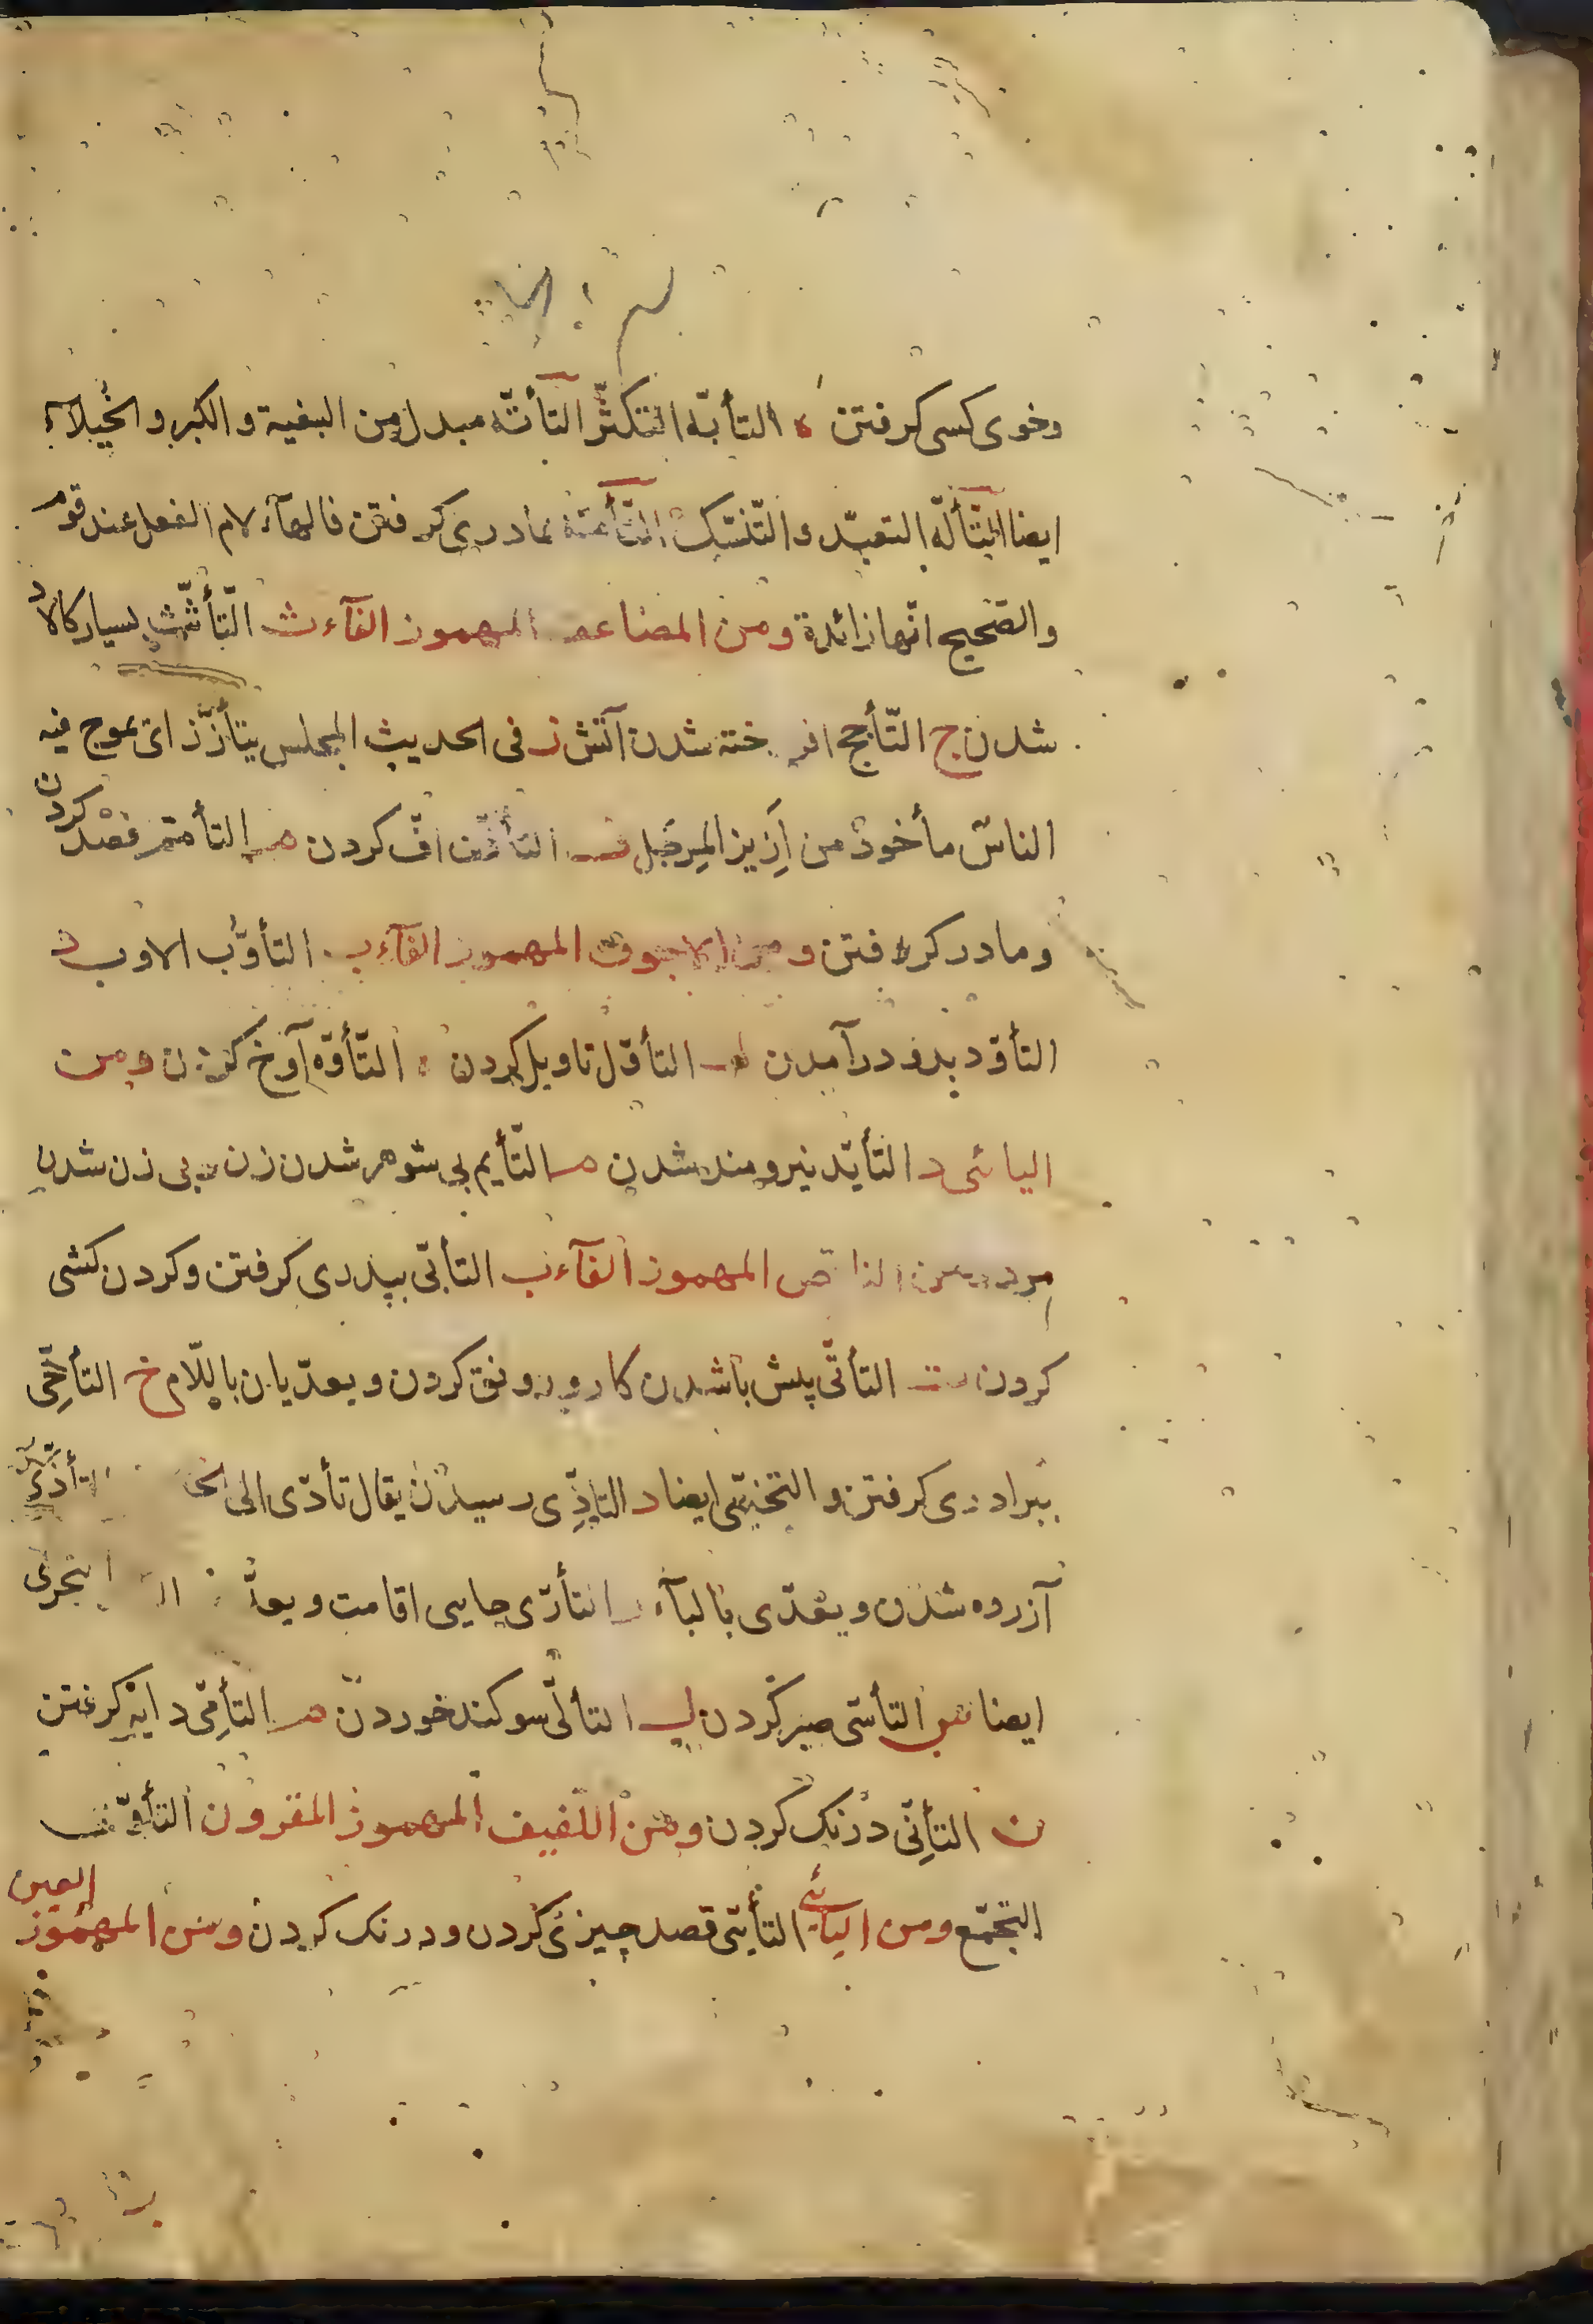 وخوی کسی کرفتن ه التأبّه التكبّر التأتّه مبدل من البغية والكبر والخُيلاء
ايضا التّألّه التعبّد والتّنسّك التّأمّه بمادری کرفتن فالهآء لام الفعل عند قوم
والصّحيح انّها زائدة ومن المضاعف المهموز الفآء ث التّأثّث بسيار کالا
شدن ج التّأجج افروخته شدن آتش ز فی الحديث المجلس يتأزّز ای يموج فيه
الناس مأخوذ من اَزيز المِرجَل ف التأفّف افّ کردن م التأمّم قصد کردن
ومادر کرفتن ومن الاجوف المهموز الفآء ب التأوّب الاوب د
التأوّد بدو درآمدن ل التأوّل تاويل کردن ه التّأوّه آوخ کردن ومن
اليائی د التأيّد نيرومند شدن م التّأيم بی شوهر شدن زن و بی زن شدن
مرد ومن الناقص المهموز الفآء ب التأبّی بپدری کرفتن وکردن کشی
کردن ت التأتّی پيش باشدن کار ورونق کردن ويعدّيان باللّام خ التأخّی
ببرادری کرفتن و التخيّی ايضا د التادّی رسيدن يقال تأدّی الی التأذّی
آزرده شدن ويعدّی بالبآء ر التأرّی جايی اقامت التحرّی
ايضا س التأسّی صبر کردن ل التألّی سوکند خوردن م التأمّی دايه کرفتن
ن التأنّی درنک کردن ومن اللّفيف المهموز المقرون التأوّی
التجمّع ومن اليائی التأيّی قصد چيزی کردن ودرنک کردن ومن المهموز العين